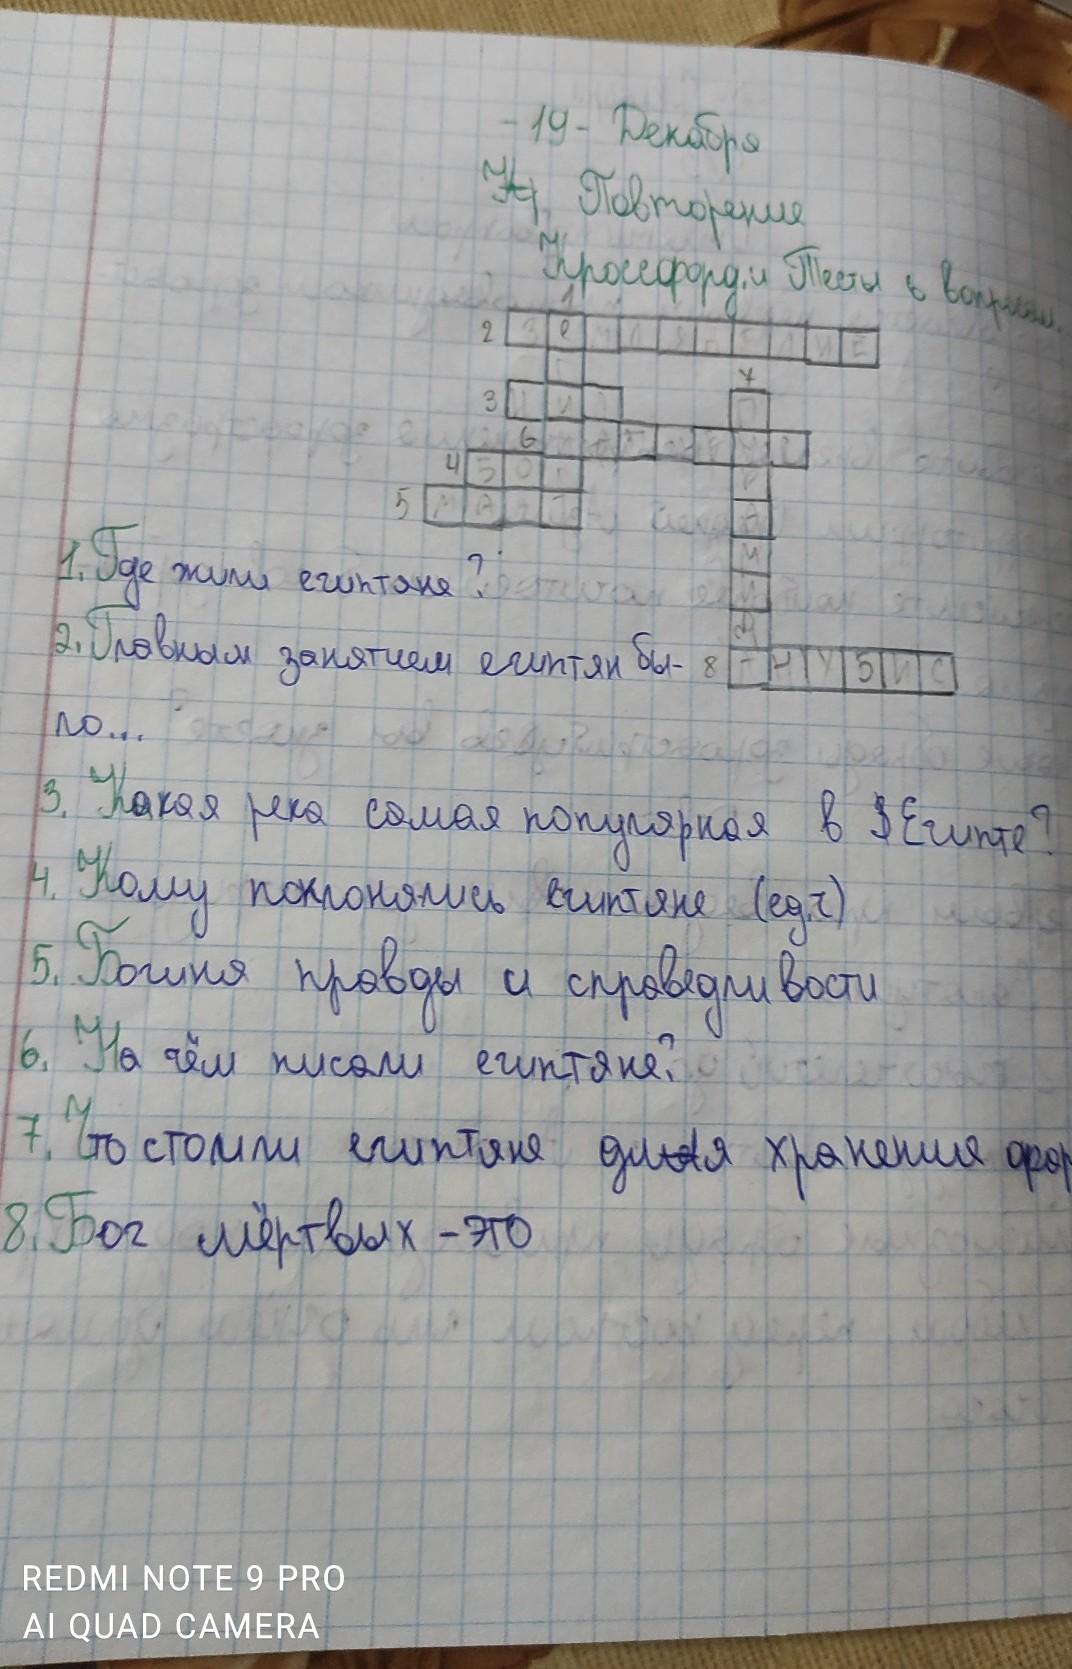 -19- Декабря
Повторение
Кроссфорд и Тесты с вопросам.
1
2 З Е М Л Е Д Е Л И Е
7
3 Н И Л
6
4 Б О Г
5 М А А Т
1. Где жили египтяне?
2. Главным занятием египтян бы-
8 А Н У Б И С
ло...
3. Какая река самая популярная в Египте?
4. Кому поклонялись египтяне (ед.ч)
5. Богиня правды и справедливости
6. На чём писали египтяне?
7. Что стоили египтяне для хранения фар
8. Бог мёртвых - это
REDMI NOTE 9 PRO
AI QUAD CAMERA